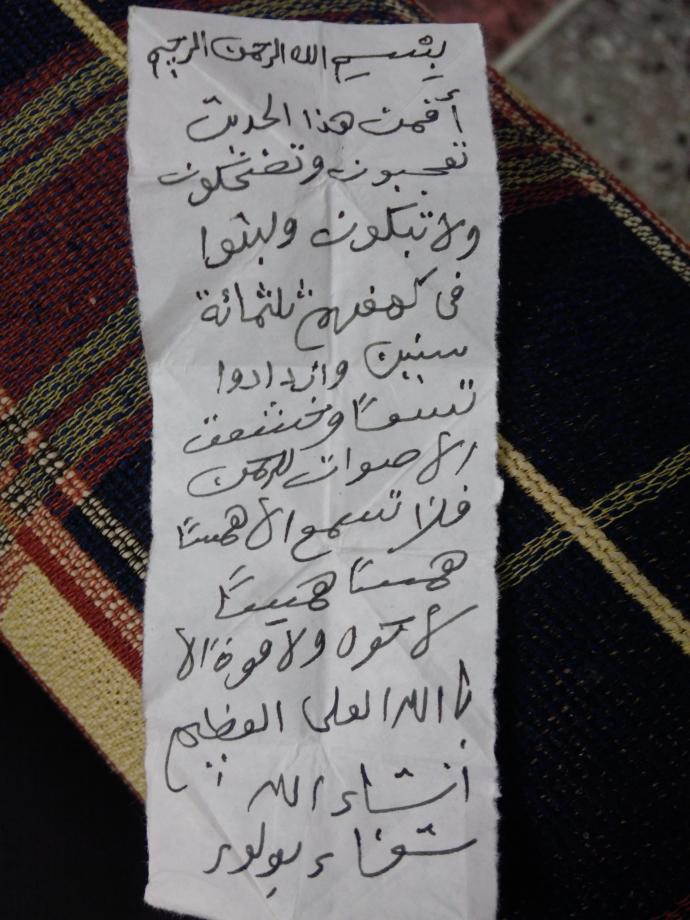 بِسْمِ الله الرحمن الرحيم
أفمن هذا الحديث
تعجبون وتضحكون
ولا تبكون ولبثوا
فى كهفهم ثلثمائة
سنين وازدادوا
تسعاً وخشعت
الاصوات للرحمن
فلا تسمع الا همساً
همساً همساً
لا حول ولا قوة الا
باالله العلى العظيم
انشاء الله
شفاء بولور